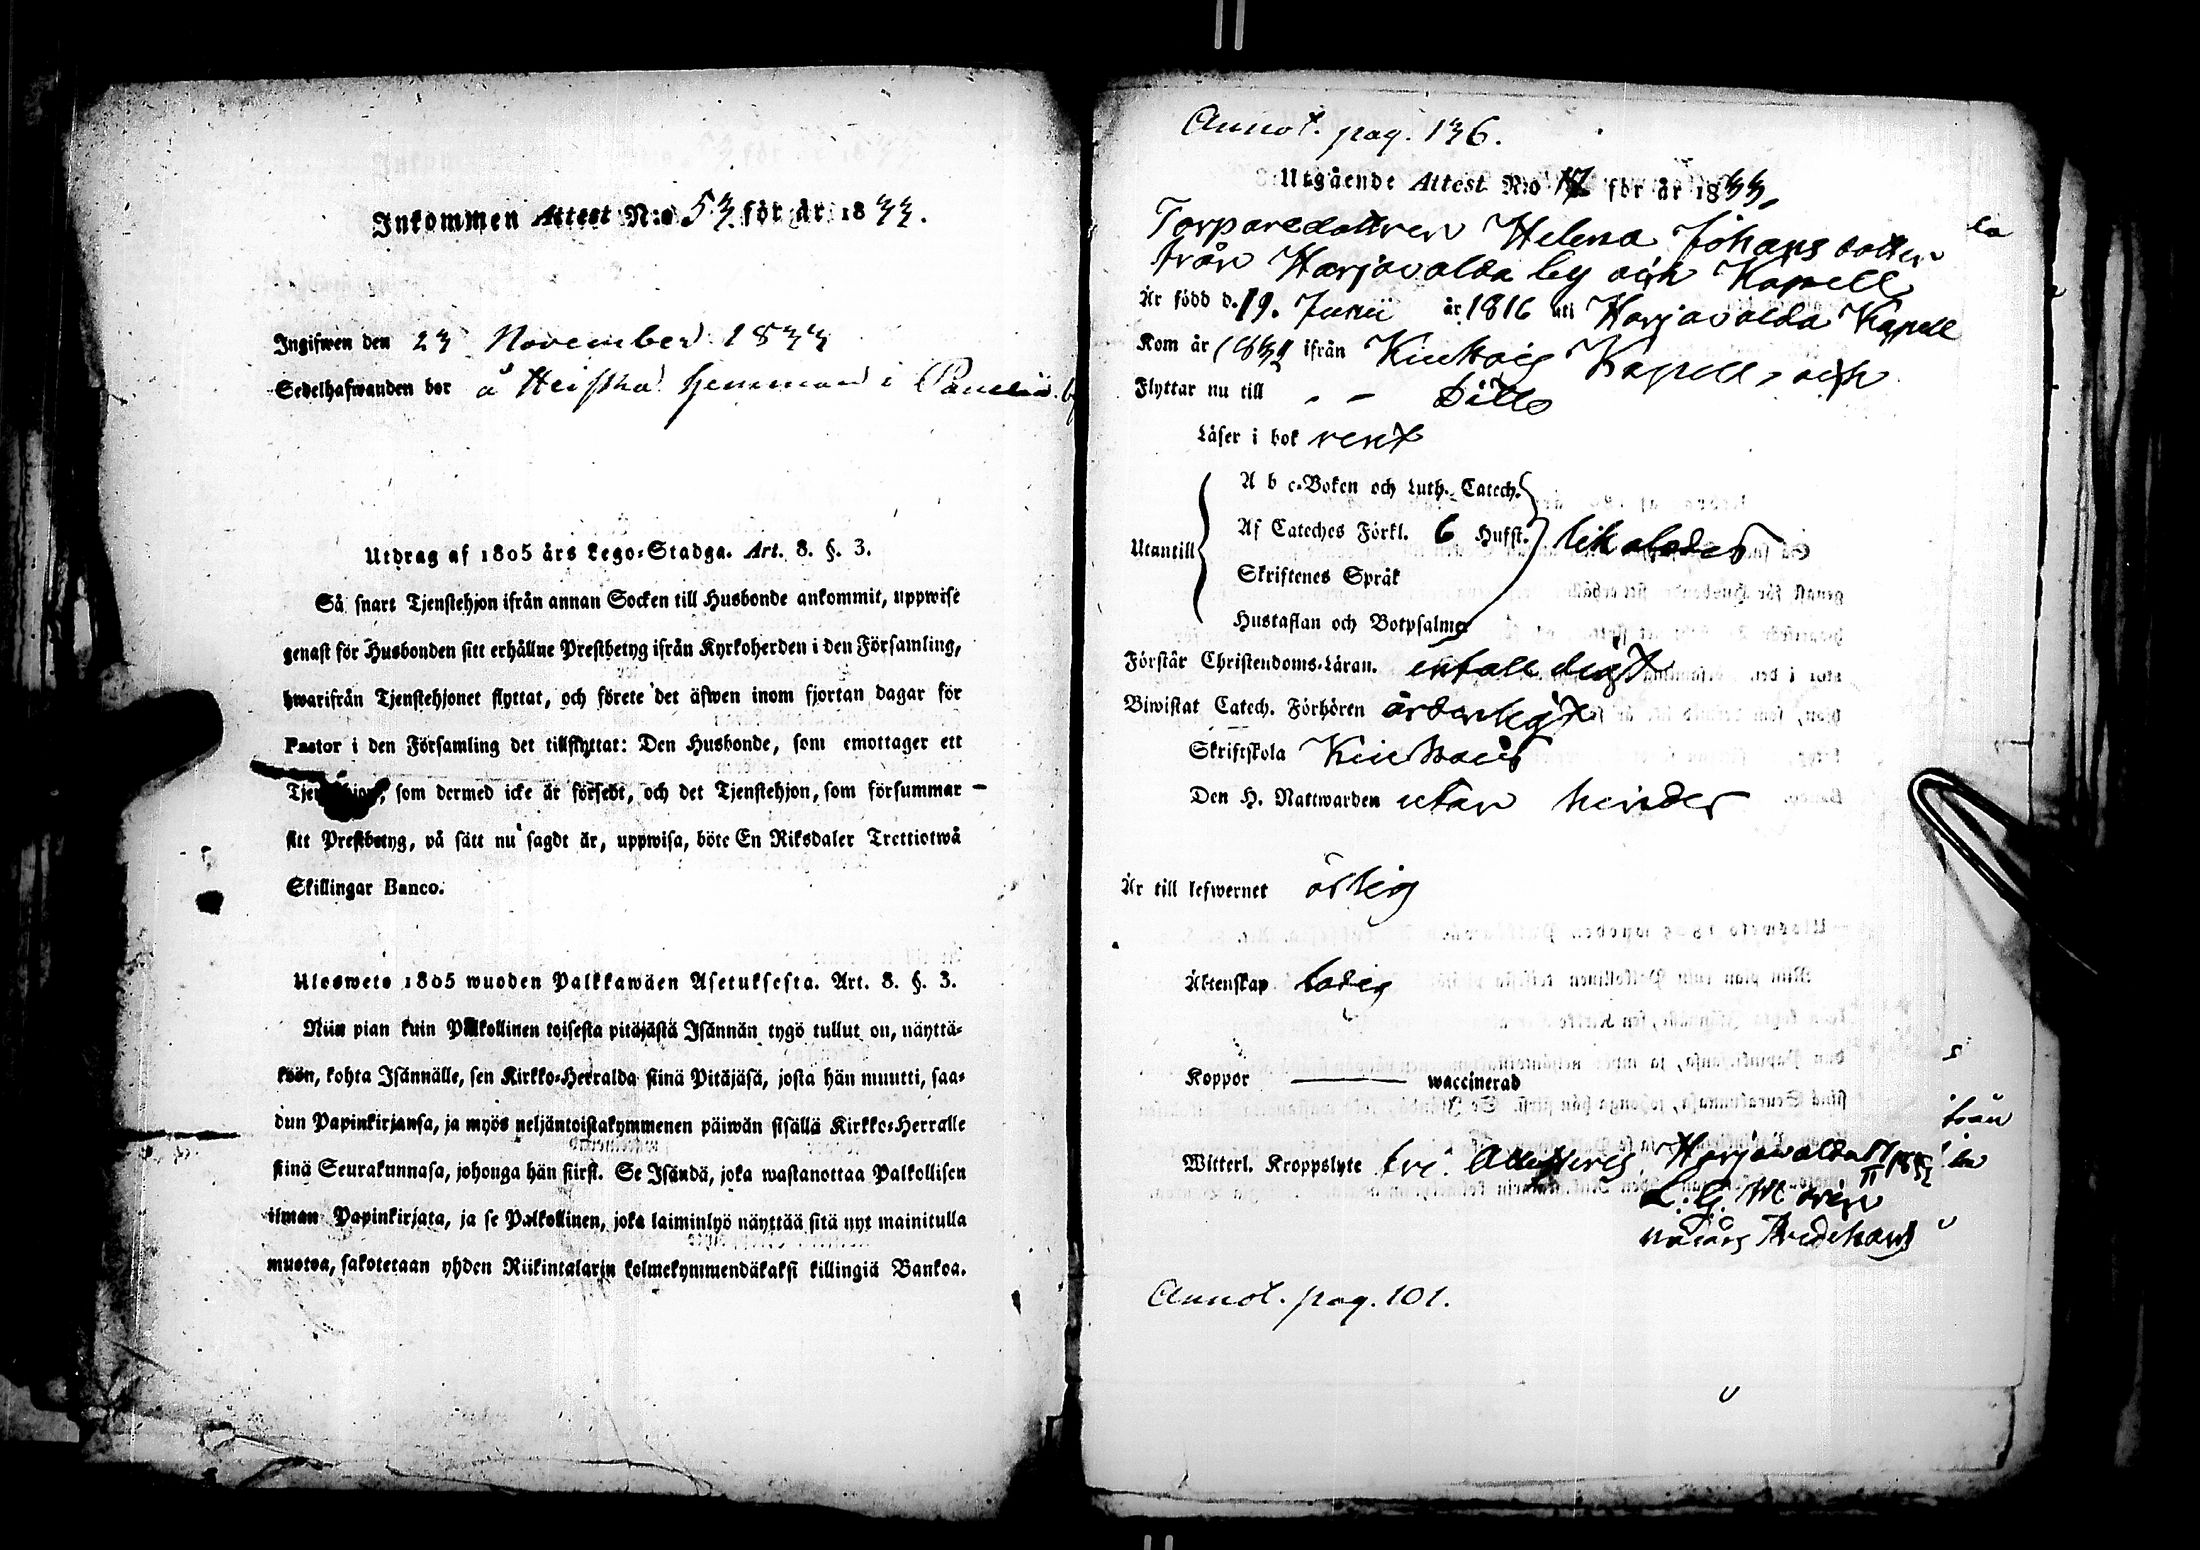 Inkommen Attest N:o 53 för år 1833.
Ingifwen den 23 November 1833
Sedelhafwanden bor å Heiska hemman i
Utdrag af 1805 års Lego-Stadga. Art. 8. §. 3.
Så snart Tjenstehjon ifrån annan Socken till Husbonde ankommit, uppwise
genast för Husbonden sitt erhållne Prestbetyg ifrån Kyrkoherden i den Församling,
hwarifrån Tjenstehjonet flyttat, och förete det äfwen inom fjortan dagar för
Pastor i den Församling det tillflyttat: Den Husbonde, som emottager ett
Tjenstehjon, som dermed icke är försedt, och det Tjenstehjon, som försummar
sitt Prestbetyg, på sätt nu sagdt är, uppwisa, böte En Riksdaler Trettiotwå
Skillingar Banco.
Ulosweto 1805 wuoden Palkkawäen Asetuksesta. Art. 8. §. 3.
Niin pian kuin Palkollinen toisesta pitäjästä Isännän tygö tullut on, näyttä-
köön, kohta Isännälle, sen Kirkko-Herralda siinä Pitäjäsä, josta hän muutti, saa-
dun Papinkirjansa, ja myös neljäntoistakymmenen päiwän sisällä Kirkko-Herralle
siinä Seurakunnasa, johonga hän siirsi. Se Isändä, joka wastanottaa Palkollisen
ilman Papinkirjata, ja se Palkollinen, joka laiminlyö näyttää sitä nyt mainitulla
muotoa, sakotetaan yhden Riikintalarin kolmekymmendäkaksi killingiä Bankoa.
Annot. pag. 136.
Utgående Attest N:o 17 för år 1833,
Torparedottren Helena Johansdotter
från Harjavalda by och Kapell
Är född d. 19. Junii år 1816 uti Harjavalda Kapell
Kom år 1832 ifrån Kiukais Kapell, och
Flyttar nu till - - Ditto
Läser i bok rent
Utantill
A b c-Boken och Luth. Catech.
Af Cateches Förkl. 6 Hufst. likaledes
Skriftenes Språk
Hustaflan och Botpsalmer
Förstår Christendoms-Läran. enfaldigt
Biwistat Catech. Förhören ordenligt
Skriftskola Kiukais
Den H. Nattwarden utan hinder
Är till lefwernet ärlig
Äktenskap ledig
Koppor waccinerad
Witterl. Kroppslyte fri. Attesteres Harjavalda
Annot. pag. 101.
från